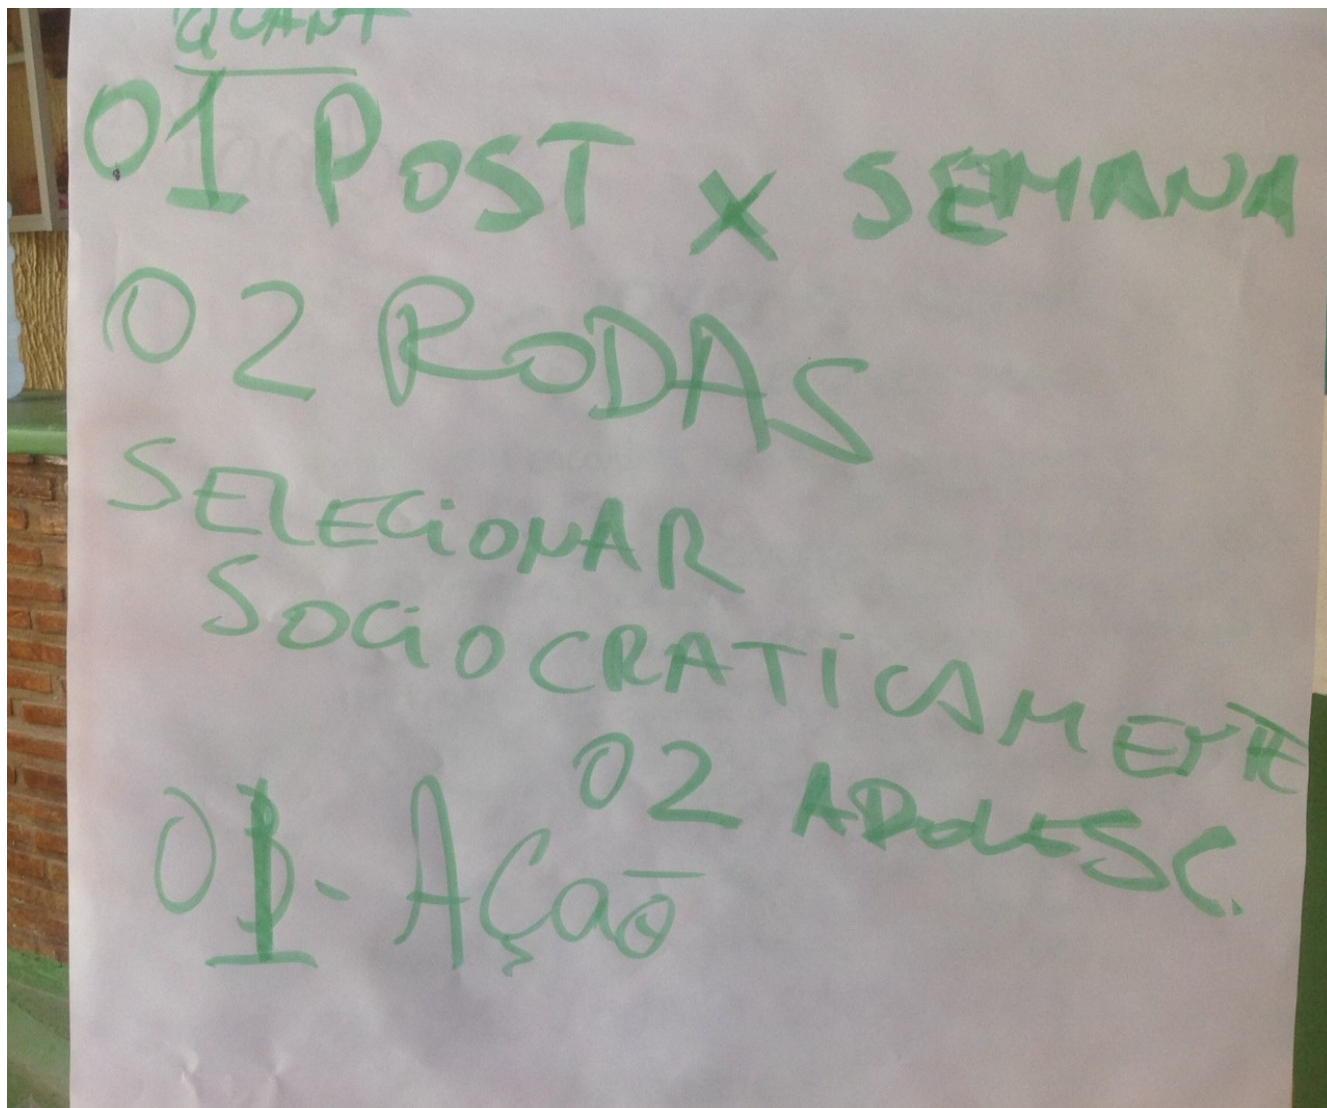 QUANT
01 POST X SEMANA
02 RODAS
SELECIONAR
SOCIOCRATICAMENTE
02 ADOLESC.
01 - AÇÃO